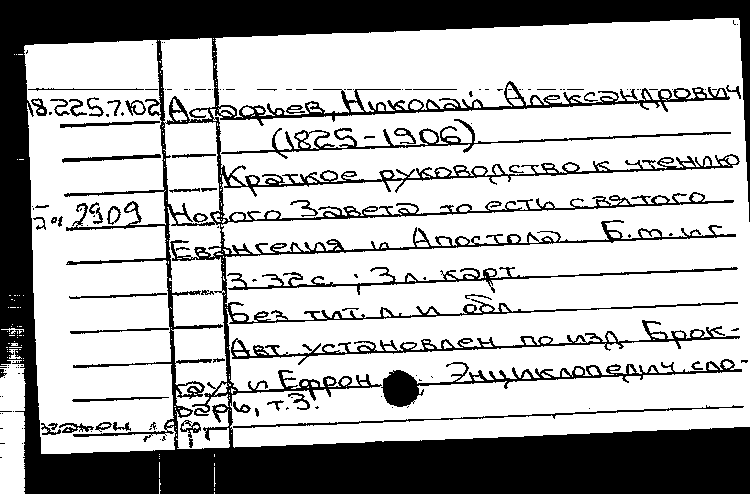 18.225.7.102 Астафьев, Николай Александрович
(1825-1906)
Краткое руководство к чтению
2909 Нового Завета то есть святого
Евангелия и Апостола. Б.м.и г.
3-32с.; 3л. карт.
Без тит. л. и обл.
Авт. установлен по изд. Брок-
гауз и Ефрон. Энциклопедич. сло-
варь, т.3.